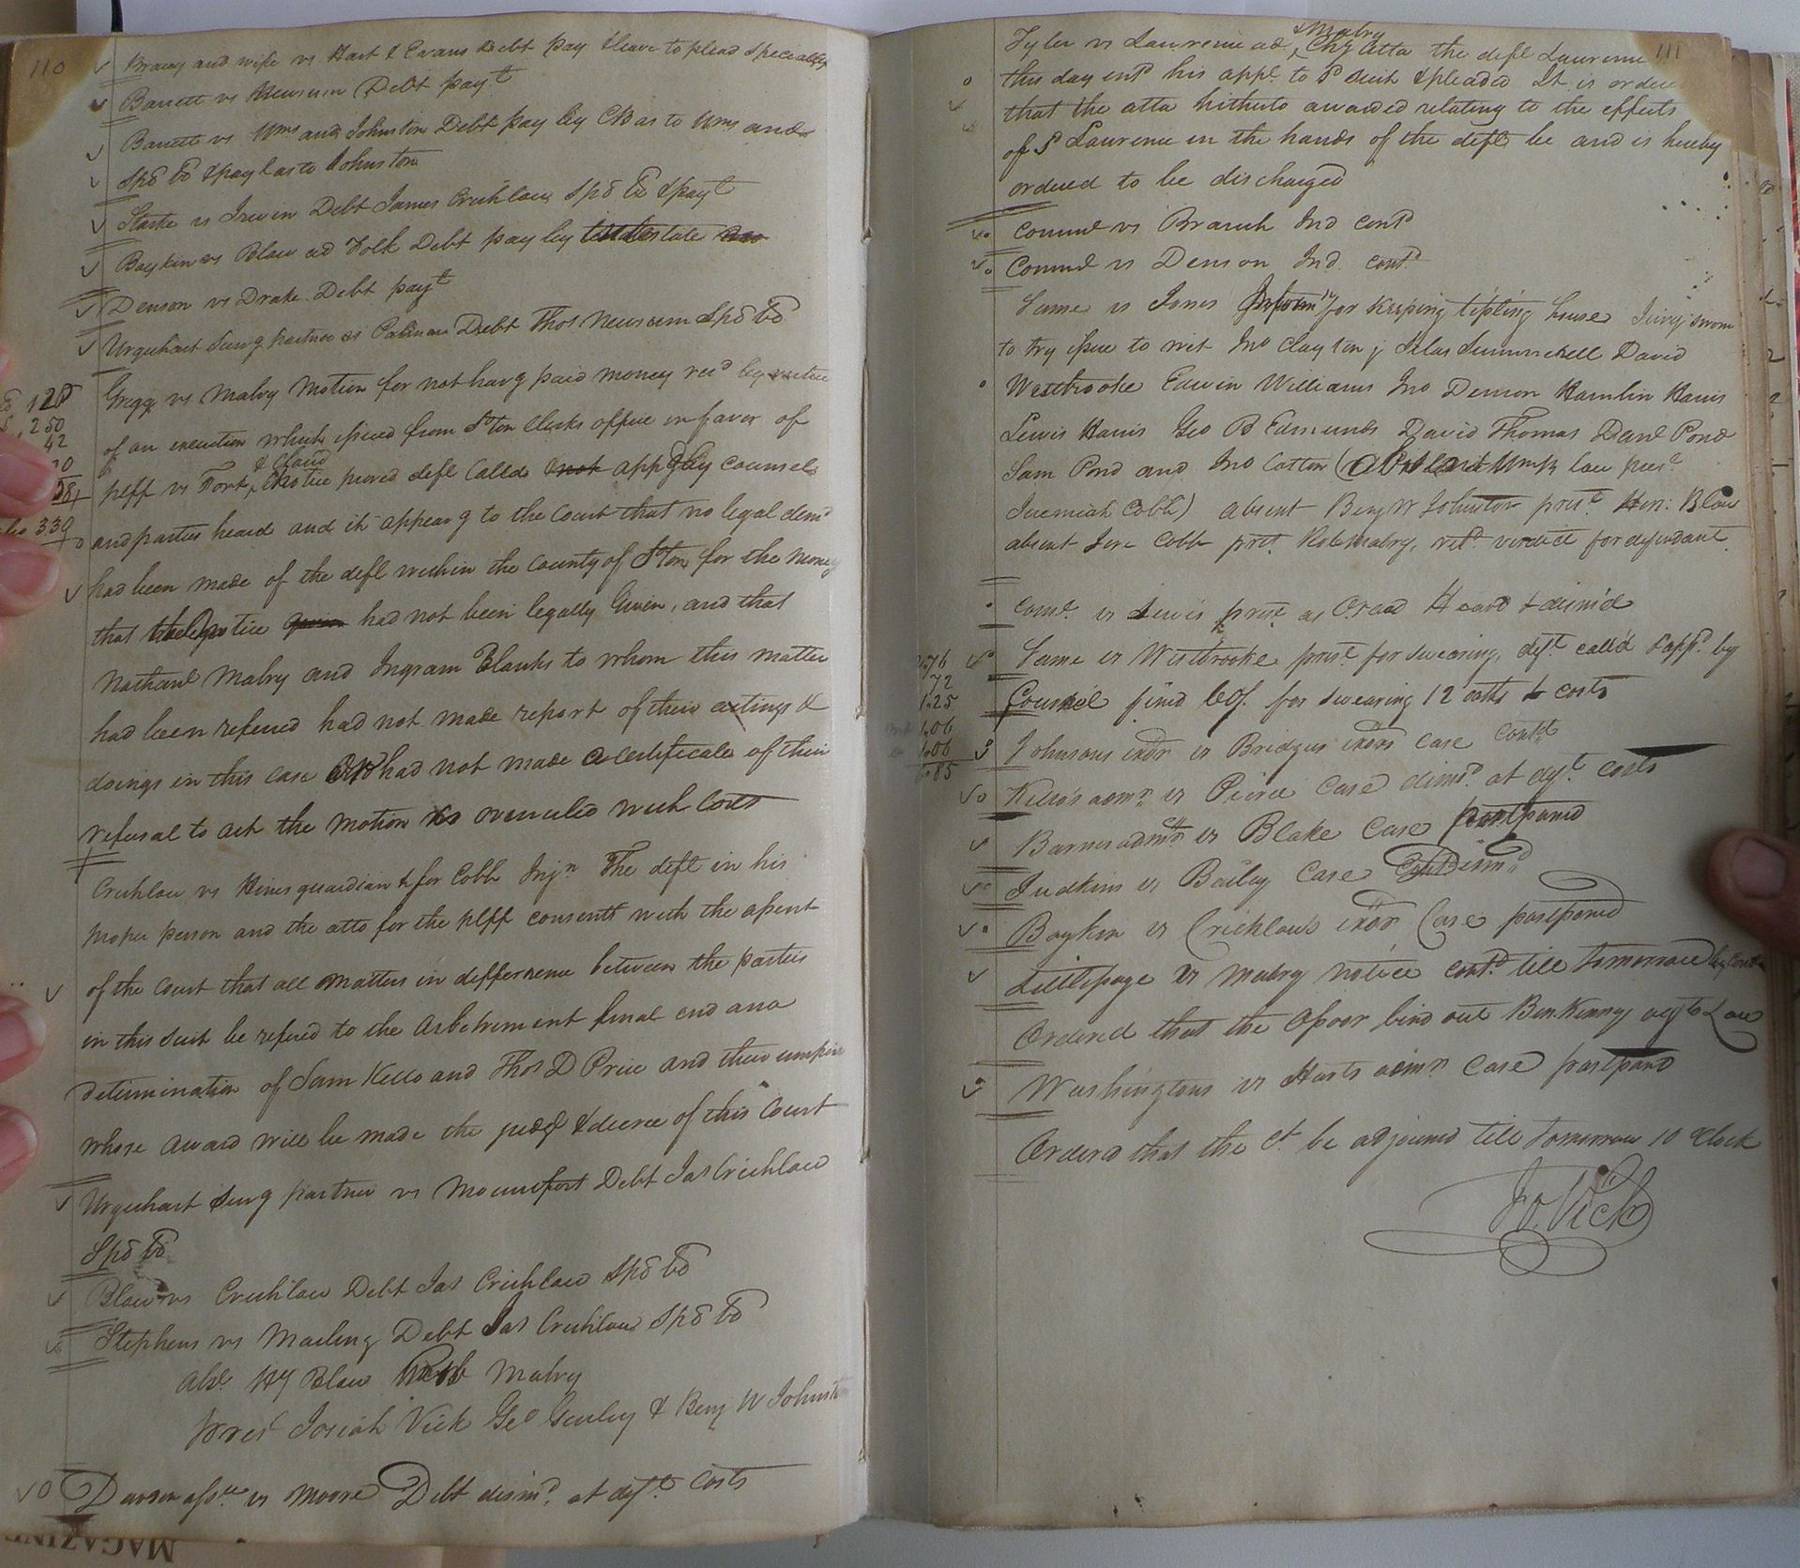 110
Bracy and wife vs Hart & Evans Debt pay & leave to plead specially
Barrett vs Newsum Debt payt
Barrett vs Wms and Johnston Debt pay by CB as to Wms and
Spd bd & pay as to Johnston
Starke vs Irwin Debt James Crichlow Spd bd & payt
Boykin vs Blow ad Folk Debt pay by
Denson vs Drake Debt payt
Urquhart Survg partner vs Debt Thos Newsum Spd bd
Gregg vs Mabry Motion for not havg paid money recd by virtue
of an execution which issued from S'ton Clerks office in favor of
& Claud
plff vs Fort, notice proved deft called appd by counsel
and parties heard and it appearg to the Court that no legal demd
had been made of the deft within the County of S'ton for the money
that the notice given had not been legally Given, and that
Nathanl Mabry and Ingram Blanks to whom this matter
had been referred had not made report of their actings &
doings in this case had not made a certificate of their
refusal to act the motion is overruled with Costs
Crichlow vs Hines guardian &c for Cobb Injn The deft in his
proper person and the atto for the plff consents with the assent
of the Court that all matters in difference between the parties
in this suit be refered to the Arbitrament final end and
determination of Sam Kello and Thos D Price and their umpire
whose award will be made the judgt & decree of this Court
Urquhart Survg partner vs Mounfort Debt Jas Crichlow
Spd bd
Blow vs Crichlow Debt Jas Crichlow Spd bd
Stephens vs Mailing Debt Jas Crichlow Spd bd
Abs. Hy Blow Mabry
Prest Josiah Vick Geo Gurley & Benj W Johnston
Dawson assee vs Moore Debt dismd. at defts costs
128
250
42
339
MAGAZINE
111
& Mabry
Tyler vs Lawrence ad Chy atta the deft Lawrence
this day entd his appe to sd suit & pleaded It is ordered
that the atta hitherto awarded relating to the effects
of sd Lawrence in the hands of the deft be and is hereby
ordered to be discharged
Commw vs Branch Ind contd
Commw vs Denson Ind. contd
Same vs Jones Informn for keeping tipling house Jury sworn
to try issue to wit Jno Clayton Silas Summerell David
Westbrooke Edwin Williams Jno Denson Hamlin Harris
Lewis Harris Geo B Edmunds David Thomas Danl Pond
Sam Pond and Jno Cotton
Jeremiah Cobb) absent Benj W Johnston prest. Hen: Blow
absent Jere Cobb prest. Rob Mabry, retd verdict for defendant
Comw vs Lewis prest as Oread Heard & dism'd
Same vs Westbrooke prest for swearing, deft call'd & appd by
Council fined for swearing 12 oaths & costs
Johnsons exor vs Bridgers exors Case Contd
Kello's admr vs Peirce Case dismd at deft costs
Barnes admr vs Blake Case postponed
Judkins vs Bailey Case Dismd
Boykin vs Crichlows exor Case postponed
Littlepage vs Mabry notice contd till tomorrow
Ordered that the Opoor bind out Ben Kenny agt Law
Washingtons vs Harts admr Case postpond
Ordered that the Ct be adjourned till tomorrow 10 oClock
Jo. Vick
72
1.25
1.06
1.06